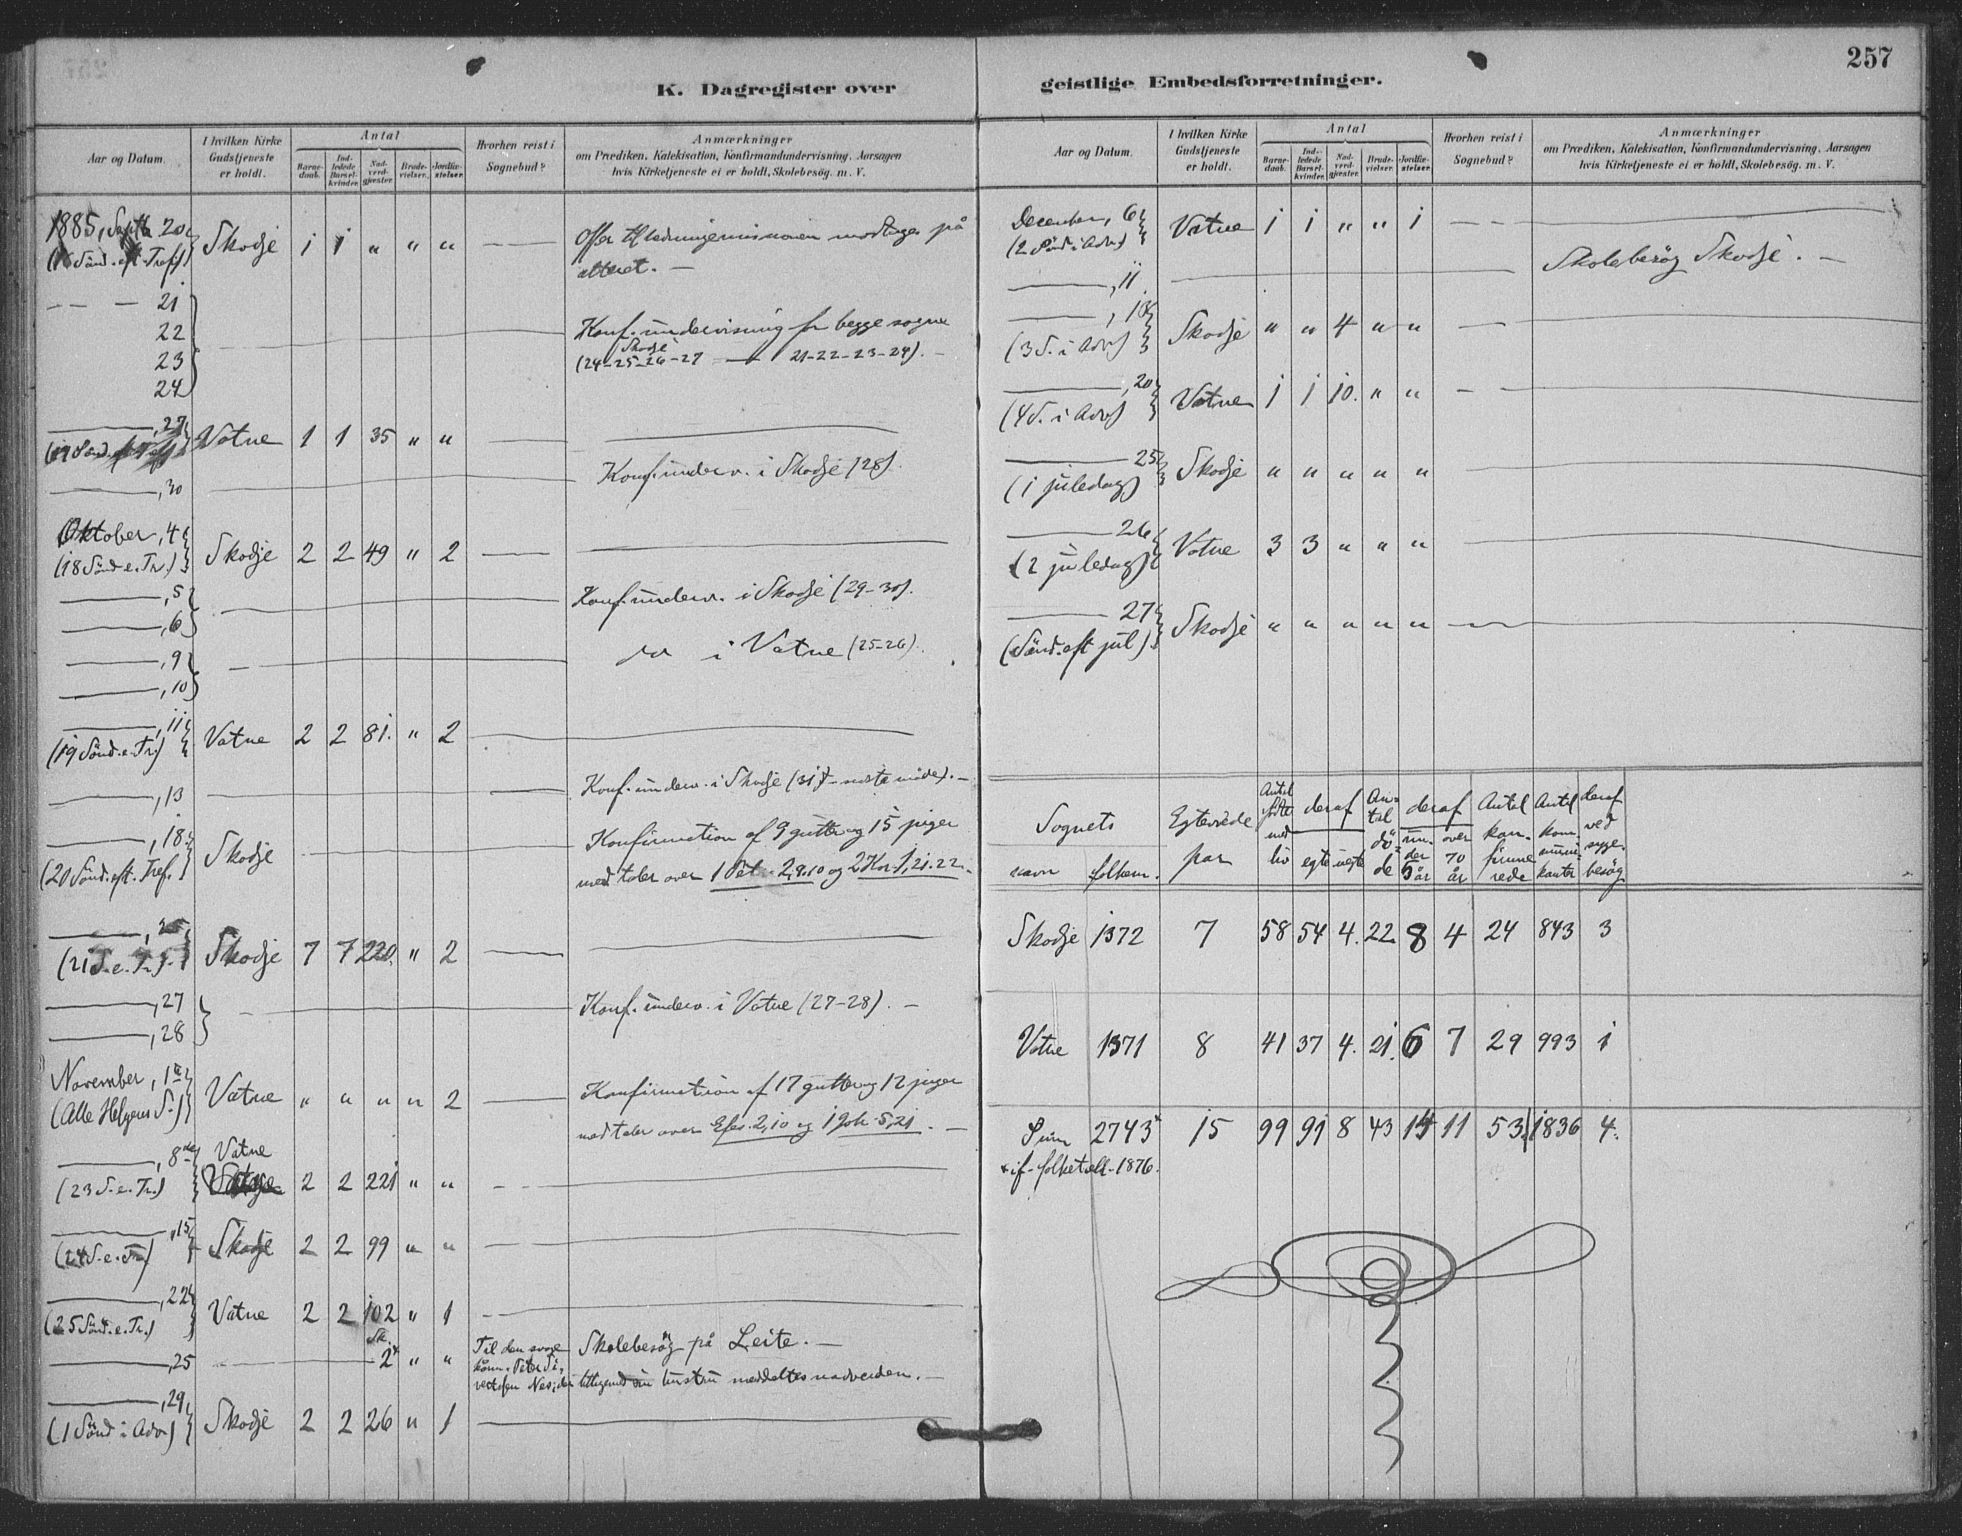 K. Dagregister over
Aar og Datum.
I hvilken Kirke Gudstjeneste er holdt.
Antal
Barnedaab.
Indledede Barselkvinder.
Nadverdgjester.
Brudevielser.
Jordfæstelser.
Hvorhen reist i Sognebud?
Anmærkninger
om Prædiken, Katekisation, Konfirmandundervisning, Aarsagen
hvis Kirketjeneste ei er holdt, Skolebesög. m. V.
1885, Septb. 20
Skodje 1 1 " " "
modtages på
alteret. —
— — 21
22
23
24
Konf. undervisning for begge sogne
Skodje
(24-25-26-27 — 21-22-23-24). —
—, 27
Vatne 1 1 35 " "
—, 30
Konf. underv. i Skodje (28).
Oktober, 4
(18 Sönd. e. Tr.) Skodje 2 2 49 " 2
—, 5
—, 6
Konf. underv. i Skodje (29-30).
—, 9
—, 10
do i Vatne (25-26).
—, 11
(19 Sönd. e. Tr.) Vatne 2 2 81. " 2
—, 13
Konf. underv. i Skodje (31) - siste möde). —
—, 18
(20 Sönd. eft. Tref. Skodje
Konfirmation af 9 gutter og 15 piger
med taler over 1 Pet. 2,9.10 og 2 Kor. 1,21.22.
—, 25
(21 S. e. Tr.) Skodje 7 7 220. " 2
—, 27
—, 28
Konf. underv. i Vatne (27-28). —
November, 1
(Alle Helgens S.) Vatne " " " " 2
Konfirmation af 17 gutter og 12 piger
med taler over Efes. 2,10 og 1 Joh. 5,21. —
—, 8de Vatne
(23 S. e. Tr.) 2 2 221 " "
—, 15
(24 S. e. Tr.) Skodje 2 2 99 " "
—, 22
(25 Sönd. e. Tr.) Vatne 2 2 102 " 1
—, 25 Sk. 2 " "
Til den svage
Skolebesög på Leite. —
tilligemed sin hustru meddeltes nadverden. —
—, 29,
(1 Sönd i Adv.) Skodje 2 2 26 " 1
geistlige Embedsforretninger.
257
Aar og Datum.
I hvilken Kirke Gudstjeneste er holdt.
Antal
Barnedaab.
Indledede Barselkvinder.
Nadverdgjester.
Brudevielser.
Jordfæstelser.
Hvorhen reist i Sognebud?
Anmærkninger
om Prædiken, Katekisation, Konfirmandundervisning. Aarsagen
hvis Kirketjeneste ei er holdt, Skolebesög. m. V.
December, 6
(2 Sönd. i Adv.) Vatne 1 1 " " 1
—, 11. Skolebesög Skodje. —
—, 13
(3 S. i Adv.) Skodje " " 4 " "
—, 20
(4 S. i Adv.) Vatne 1 1 10. " "
— 25
(1 juledag) Skodje " " " " "
— 26
(2 juledag) Vatne 3 3 " " "
— 27
(Sönd. eft jul). Skodje " " " " "
Sognets navn
folkem.
Egteviede par
Antal födte med liv
deraf
egte
uegte
Antal döde
deraf
under 5 år
over 70 år
Antal konfirmerede
Antal kommunikanter
deraf ved sygebesög
Skodje 1372 7 58 54 4. 22 8 4 24 843 3
Vatne 1371 8 41 37 4. 21. 6 7 29 993 1
Sum 2743 15 99 91 8 43 14 11 53 1836 4.
× if. folketæll. 1876.